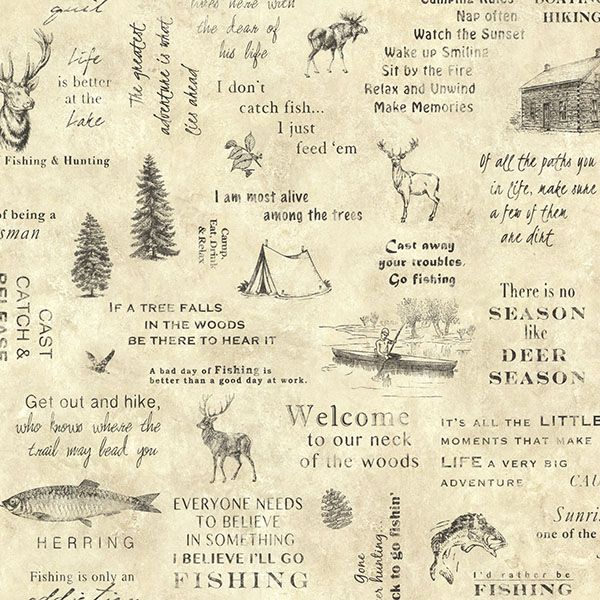 quit
lives here with
the dear of
his life
Camping Rules
Nap often
Watch the Sunset
Wake up Smiling
Sit by the Fire
Relax and Unwind
Make Memories
BOATING
HIKING
Life
is better
at the
Lake
The greatest
adventure is what
lies ahead
I don't
catch fish...
I just
feed 'em
Fishing & Hunting
Of all the paths you
in life, make sure
a few of them
are dirt
of being a
sman
I am most alive
among the trees
Camp,
Eat, Drink
& Relax
Cast away
your troubles,
Go fishing
CAST
CATCH &
RELEASE
IF A TREE FALLS
IN THE WOODS
BE THERE TO HEAR IT
There is no
SEASON
like
DEER
SEASON
A bad day of Fishing is
better than a good day at work.
Get out and hike,
who knows where the
trail may lead you
Welcome
to our neck
of the woods
IT'S ALL THE LITTLE
MOMENTS THAT MAKE
LIFE A VERY BIG
ADVENTURE
CAU
HERRING
EVERYONE NEEDS
TO BELIEVE
IN SOMETHING
I BELIEVE I'LL GO
FISHING
Gone
er hunting...
ck to go fishin'
Sunri
one of the
Fishing is only an
addiction
I'd rather be
FISHING